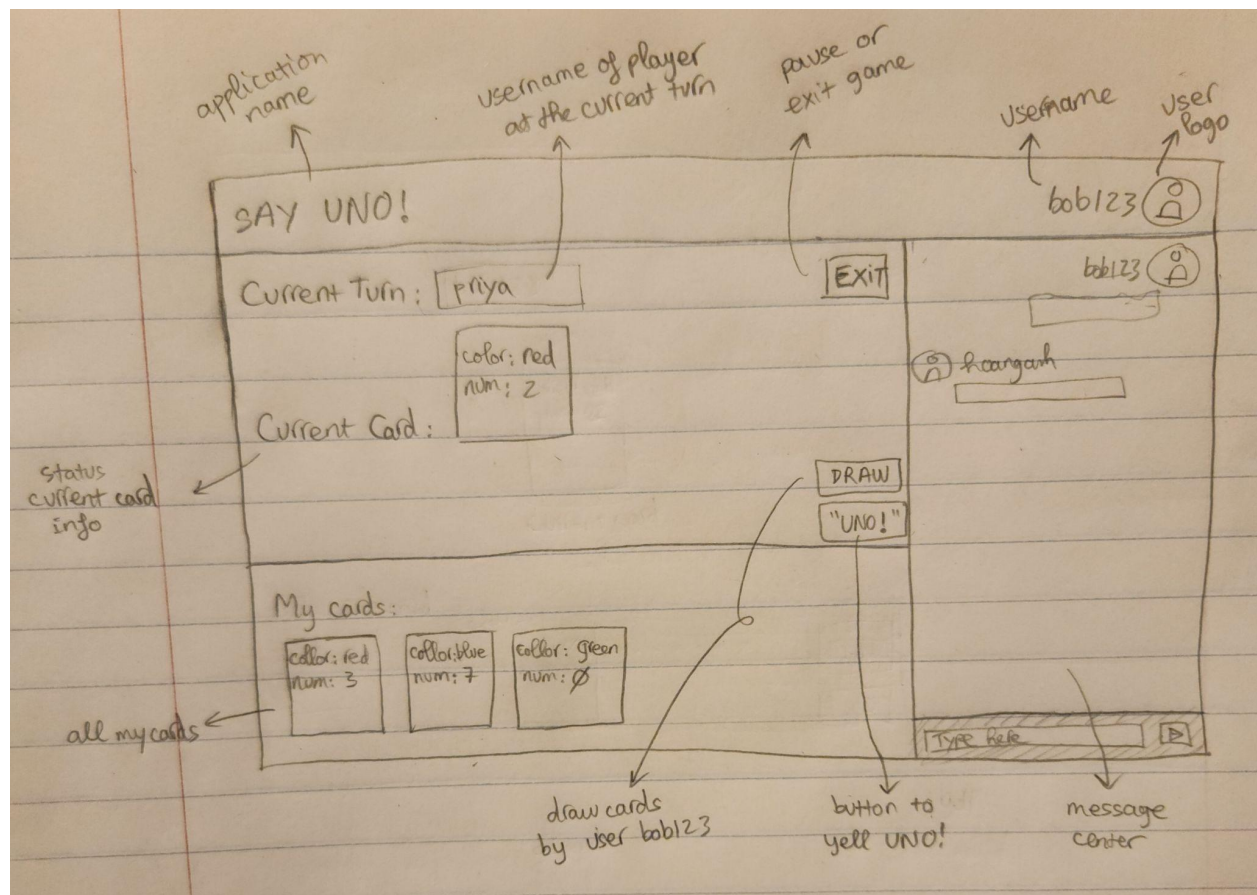 application
name
username of player
at the current turn
pause or
exit game
username
user
logo
SAY UNO!
bob123
Current Turn: priya
EXIT
bob123
color: red
num: 2
hoanganh
Current Card:
status
current card
info
DRAW
"UNO!"
My cards:
collor: red
num: 3
collor:blue
num: 7
collor: green
num: 0
all my cards
Type here
draw cards
by user bob123
button to
yell UNO!
message
center